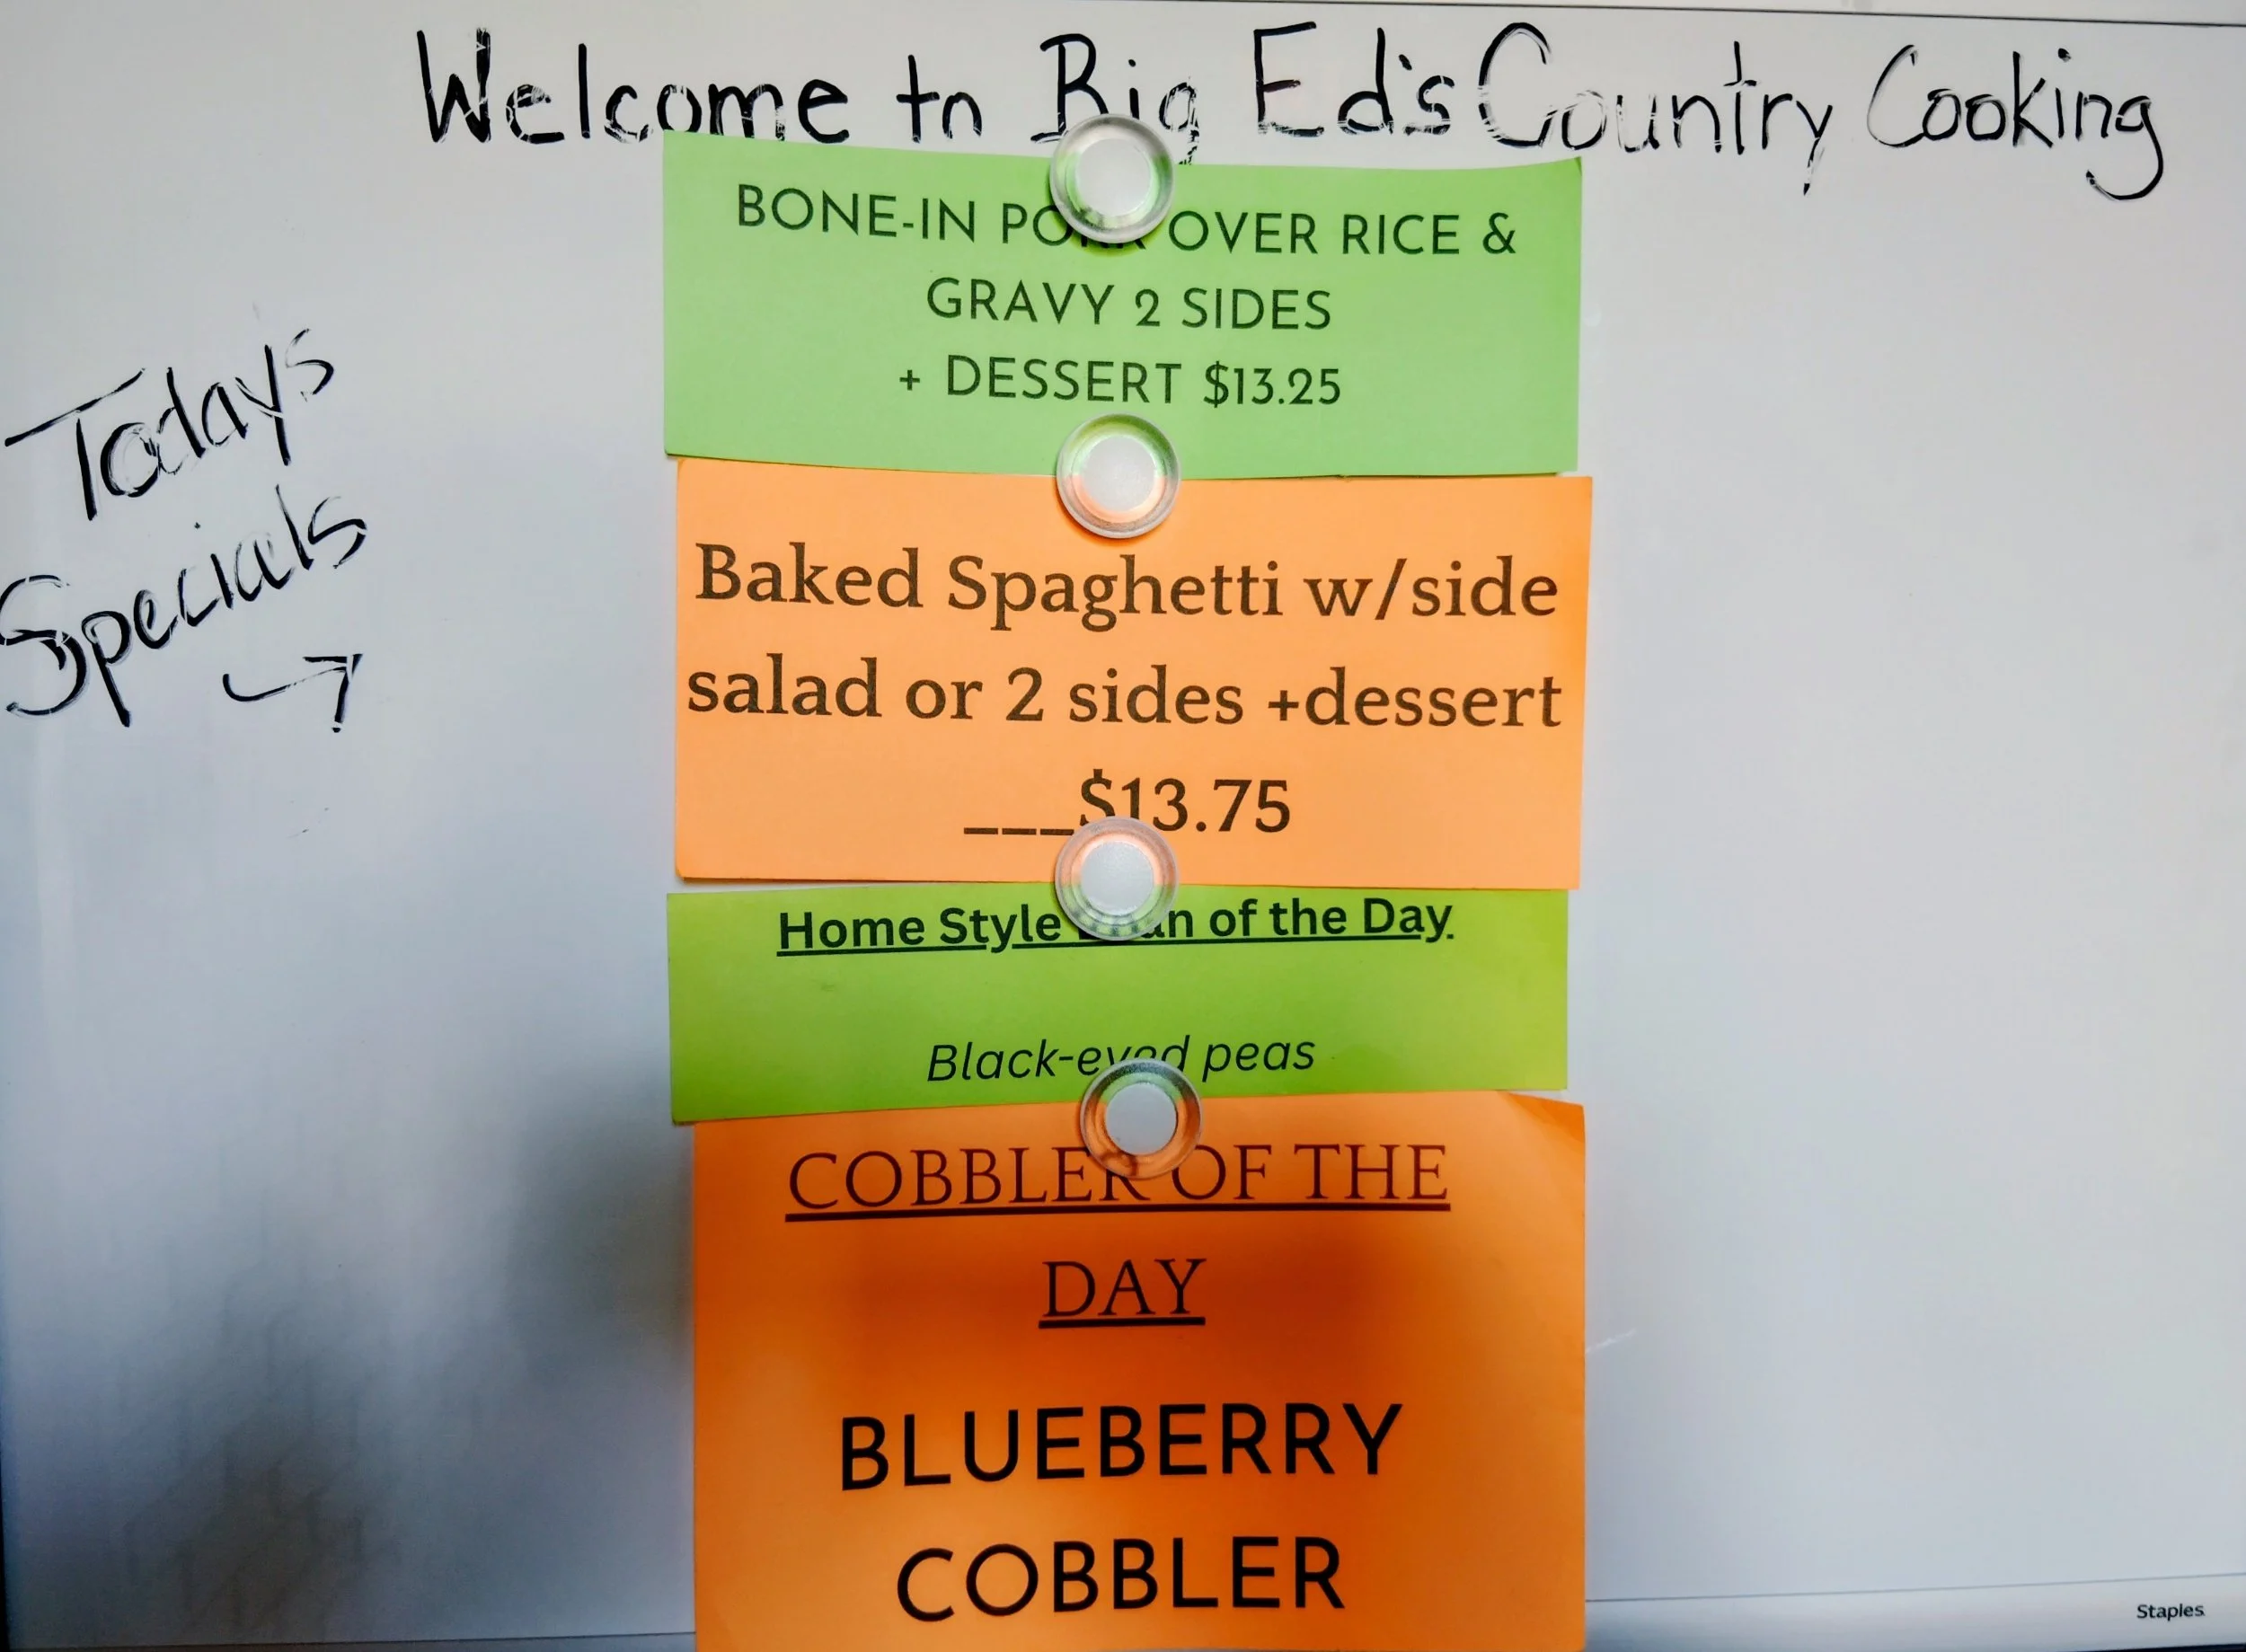 Welcome to Big Ed's Country Cooking
BONE-IN PORK OVER RICE &
GRAVY 2 SIDES
+ DESSERT $13.25
Todays
Specials
Baked Spaghetti w/side
salad or 2 sides +dessert
___$13.75
Home Style Bean of the Day
Black-eyed peas
COBBLER OF THE
DAY
BLUEBERRY
COBBLER
Staples